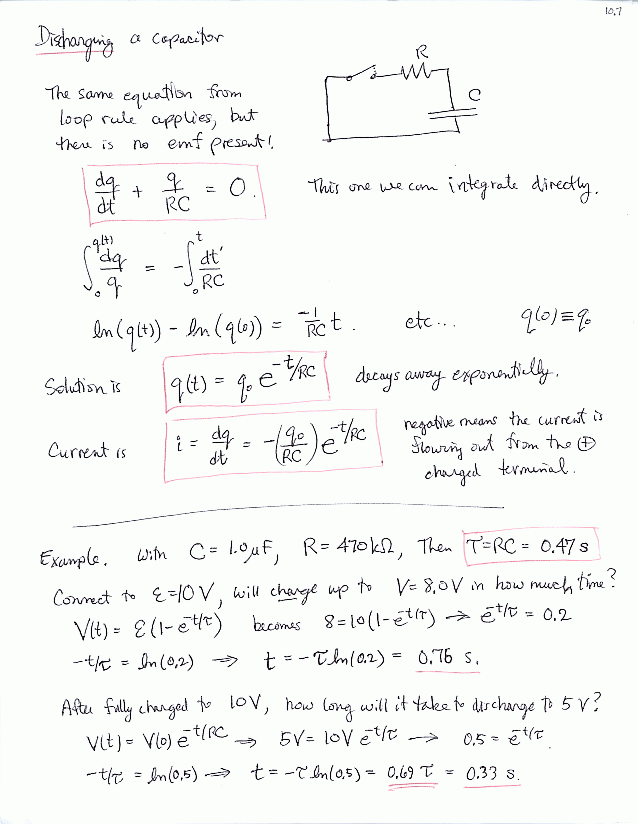 10.7
Discharging a capacitor
R
C
The same equation from
loop rule applies, but
there is no emf present!
dq/dt + q/RC = 0.
This one we can integrate directly.
∫₀^q(t) dq/q = -∫₀^t dt'/RC
ln(q(t)) - ln(q(0)) = -1/RC t. etc... q(0) ≡ q₀
Solution is q(t) = q₀ e^-t/RC decays away exponentially.
Current is i = dq/dt = -(q₀/RC) e^-t/RC
negative means the current is
flowing out from the ⊕
charged terminal.
Example. With C = 1.0 μF, R = 470 kΩ, Then τ = RC = 0.47 s
Connect to ℰ = 10 V, will charge up to V = 8.0 V in how much time?
V(t) = ℰ(1 - e^-t/τ) becomes 8 = 10(1 - e^-t/τ) → e^-t/τ = 0.2
-t/τ = ln(0.2) ⇒ t = -τ ln(0.2) = 0.76 s.
After fully charged to 10V, how long will it take to discharge to 5 V?
V(t) = V(0) e^-t/RC ⇒ 5V = 10V e^-t/τ → 0.5 = e^-t/τ
-t/τ = ln(0.5) ⇒ t = -τ ln(0.5) = 0.69 τ = 0.33 s.